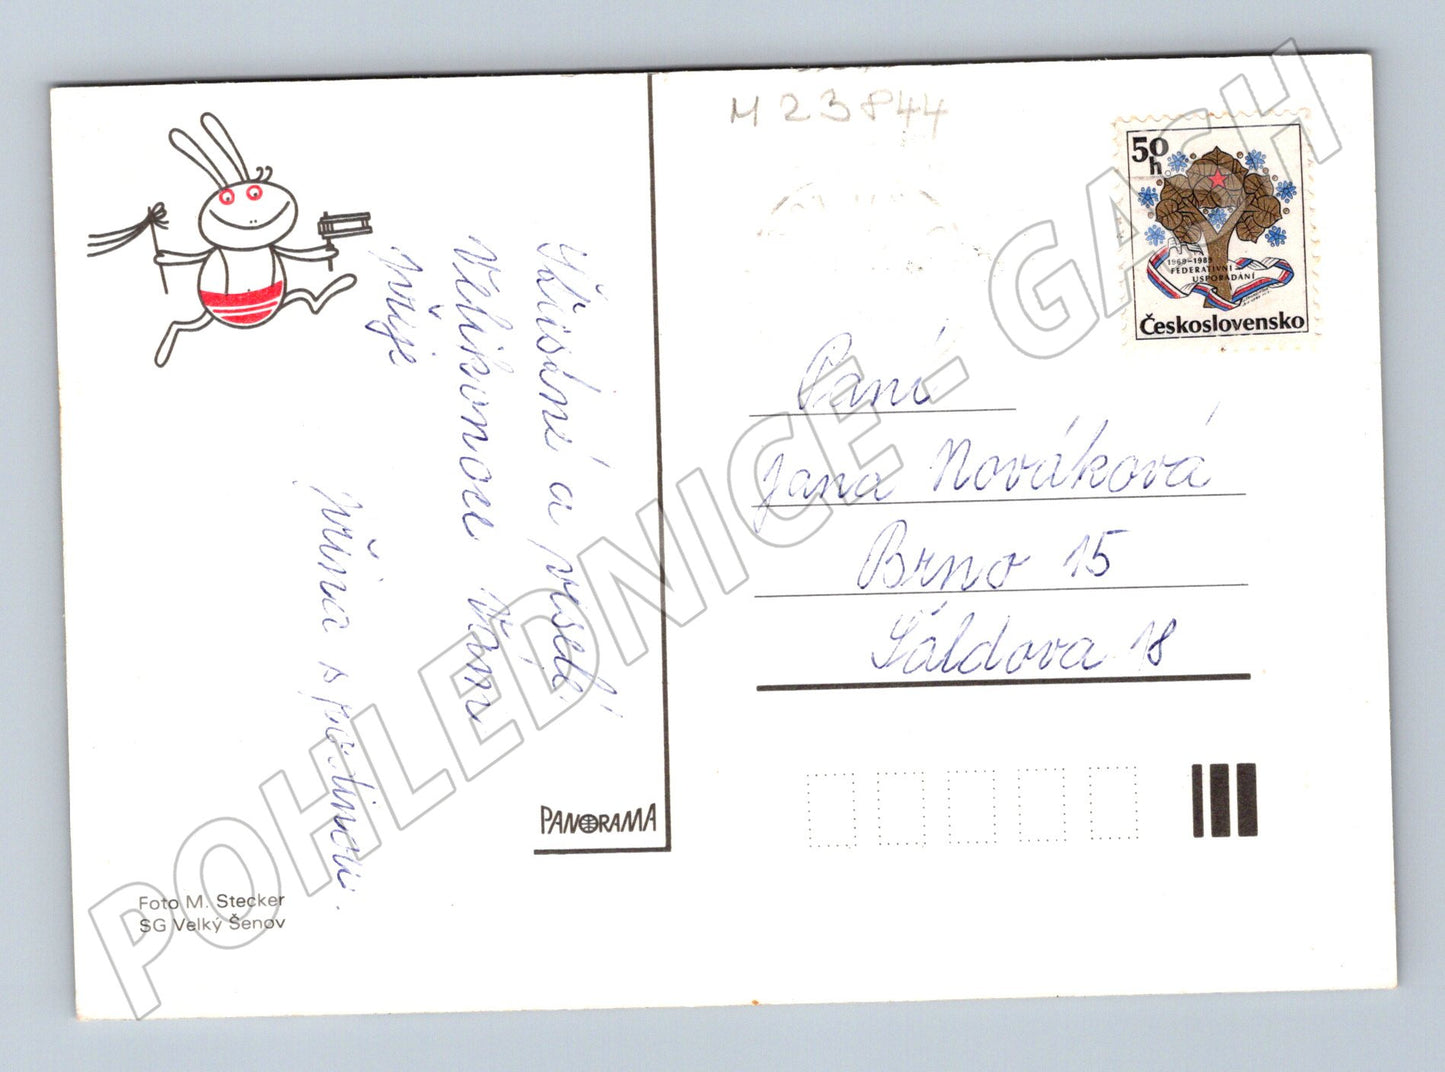 M 23844
50
h
1969-1989
FEDERATIVNÍ
USPOŘÁDÁNÍ
Československo
Krásné a veselé
Velikonoce Vám
přeje
Jiřina s rodinou.
Paní
Jana Nováková
Brno 15
Šáldova 18
PANORAMA
Foto M. Stecker
SG Velký Šenov
POHLEDNICE - GASH